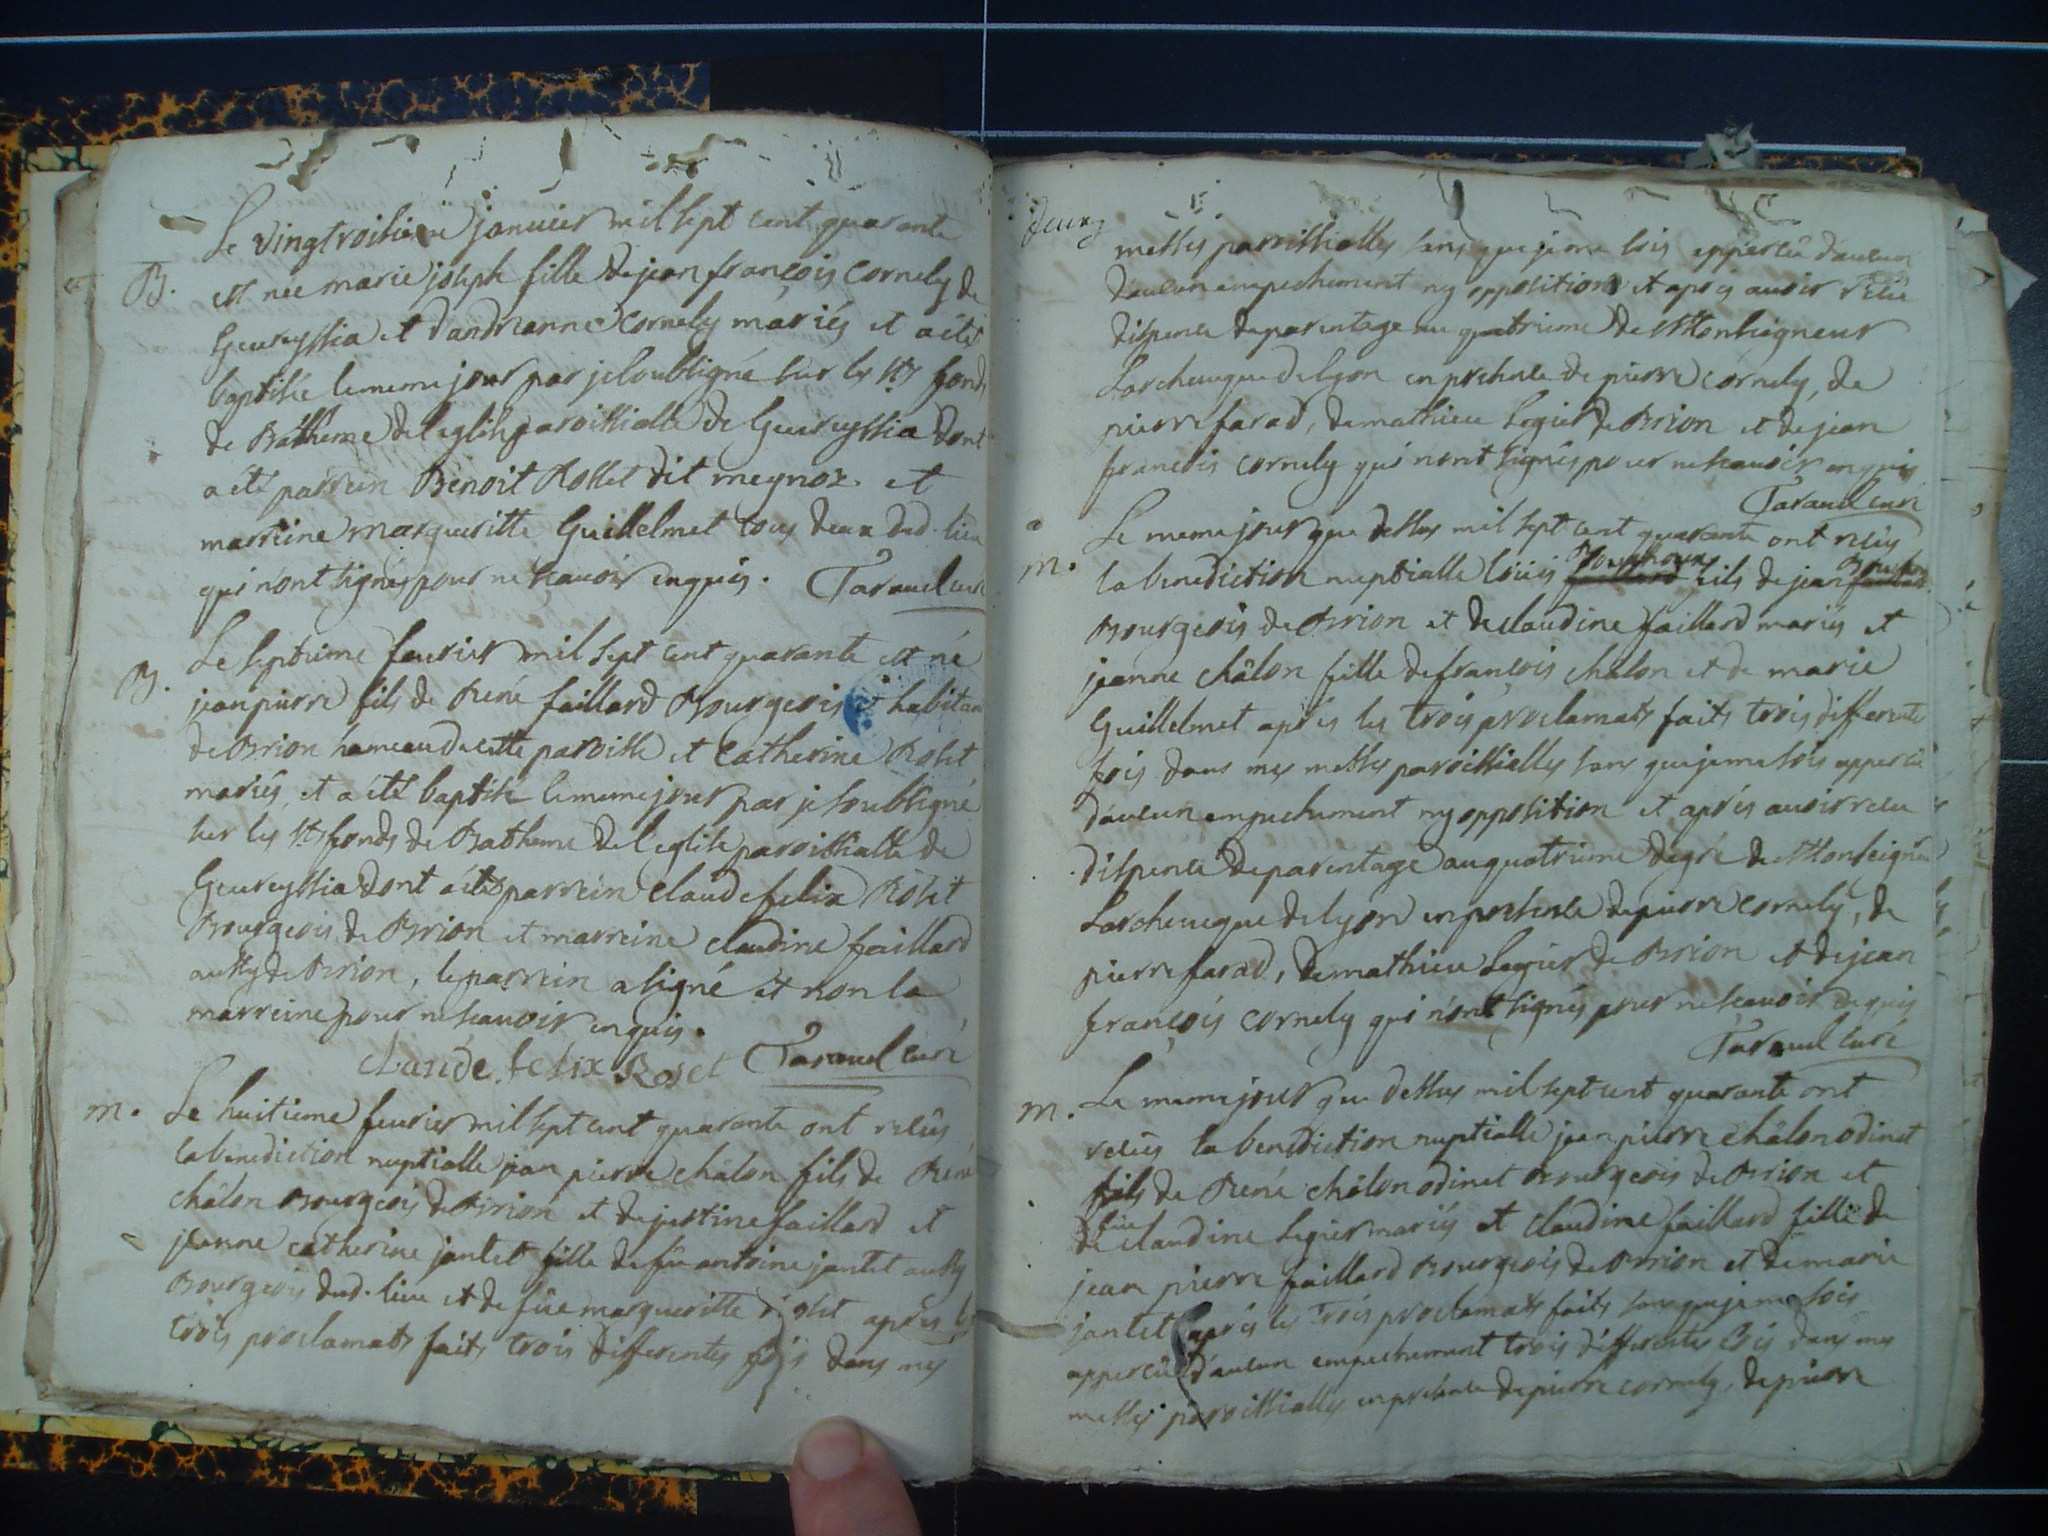 Le vingtroisieme janvier mil sept cent quarante
B. est née marie joseph fille de jean françois Cornely de
Geureyssia et dandrianne Cornely mariés et a été
baptisée le meme jour par je soubsigné sur les sts fonds
de Batheme de leglise paroissialle de Geureyssia dont
a été parrein Benoit Rosset dit meynoz et
marreine margueritte Guillelmet tous deux dud. lieu
qui n'ont signés pour ne scavoir enquis. Taraud curé
Le septieme feurier mil sept cent quarante est né
B. jean pierre fils de René faillard Bourgeois habitan
de Brion hameau de cette paroisse et Catherine Roset
mariés, et a été baptisé le meme jour par je soubsigné
sur les sts fonds de Batheme de leglise paroissialle de
Geureyssia dont a été parrein Claude felix Roset
Bourgeois de Brion et marreine claudine faillard
aussy de Brion, le parrein a signé et non la
marreine pour ne scavoir enquis.
Claude felix Roset Taraud curé
m. Le huitieme feurier mil sept cent quarante ont recûs
la benediction nuptialle jean pierre châlon fils de René
châlon Bourgeois de Brion et de justine faillard et
jeanne catherine jantet fille de fû antoine jantet aussy
Bourgeois dud. lieu et de fûe margueritte roset après les
trois proclamats faits trois differentes fois dans mes
deux
messes paroissialles sans que je me sois apperçû d'aucun
d'aucun empechement ny opposition et après avoir reçu
dispence de parentage au quatrieme de Monseigneur
Larcheueque de Lyon en presence de pierre cornely, de
pierre farad, de mathieu Legier de Brion et de jean
francois cornely qui n'ont signés pour ne scavoir enquis
Taraud curé
Le meme jour que dessus mil sept cent quarante ont recûs
m. la benediction nuptialle loüis fils de jean
Bourgeois de Brion et de claudine faillard mariés et
jeanne châlon fille de francois châlon et de marie
Guillelmet après les trois proclamats faits trois differente
fois dans mes messes paroissialles sans que je me sois apperçu
d'aucun empechement ny opposition et après auoir recu
dispence de parentage au quatrieme degré de Monseigneu
Larcheueque de lyon en presence de pierre cornely, de
pierre farad, de mathieu Legier de Brion et de jean
françois cornely qui n'ont signés pour ne scavoir enquis
Taraud curé
m. Le meme jour que dessus mil sept cent quarante ont
recûs la benediction nuptialle jean pierre châlon odinet
fils de René châlon odinet Bourgeois de Brion et
de fûe claudine Legier mariés et claudine faillard fille de
jean pierre faillard Bourgeois de Brion et de marie
jantet après les trois proclamats faits sans que je me sois
apperçû d'aucun empechement trois differentes fois dans mes
messes paroissialles en presence de pierre cornely, de pierre